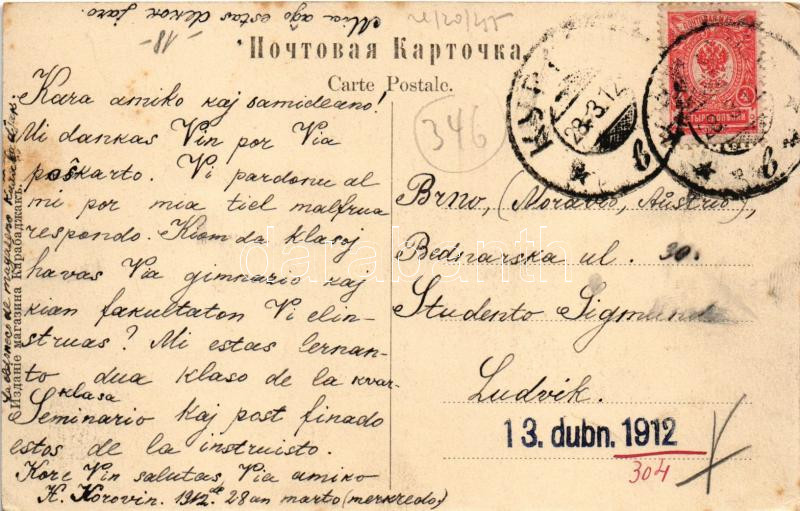 Mia aĝo estas dekok jaro.
-18-
Почтовая Карточка
Carte Postale.
346
Kara amiko kaj samideano!
Mi dankas Vin por Via
poŝkarto. Vi pardonu al
mi por mia tiel malfrua
respondo. Kiom da klasoj
havas Via gimnazio kaj
kian fakultaton Vi elin-
struas? Mi estas lernan-
to dua klaso de la kvar-
klasa
Seminario kaj post finado
estos de la instruisto.
Kore Vin salutas, Via amiko
K. Korovin. 1912 de 28 an marto (merkredo)
Изданіе магазина Карабаджакъ.
28-3.12
Brno, (Moravio, Aŭstrio),
Bednarska ul. 30.
Studento Sigmund
Ludvik.
13. dubn. 1912
304
darabanth